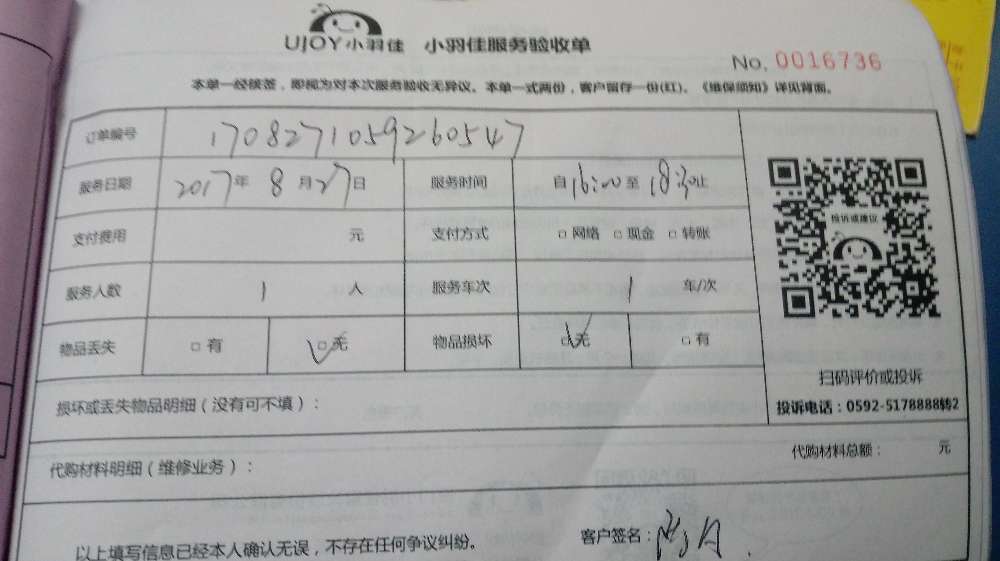 UJOY小羽佳 小羽佳服务验收单
No. 0016736
本单一经签签，即视为对本次服务验收无异议。本单一式两份，客户留存一份(红)。《维保须知》详见背面。
订单编号 1708271059260547
服务日期 2017年 8月27日 服务时间 自16:00至18:30止
投诉或建议
支付费用 元 支付方式 □ 网络 □ 现金 □ 转账
服务人数 1 人 服务车次 1 车/次
物品丢失 □ 有 ☑无 物品损坏 ☑无 □ 有
扫码评价或投诉
损坏或丢失物品明细（没有可不填）：
投诉电话：0592-5178888转2
代购材料明细（维修业务）：
代购材料总额： 元
以上填写信息已经本人确认无误，不存在任何争议纠纷。
客户签名：